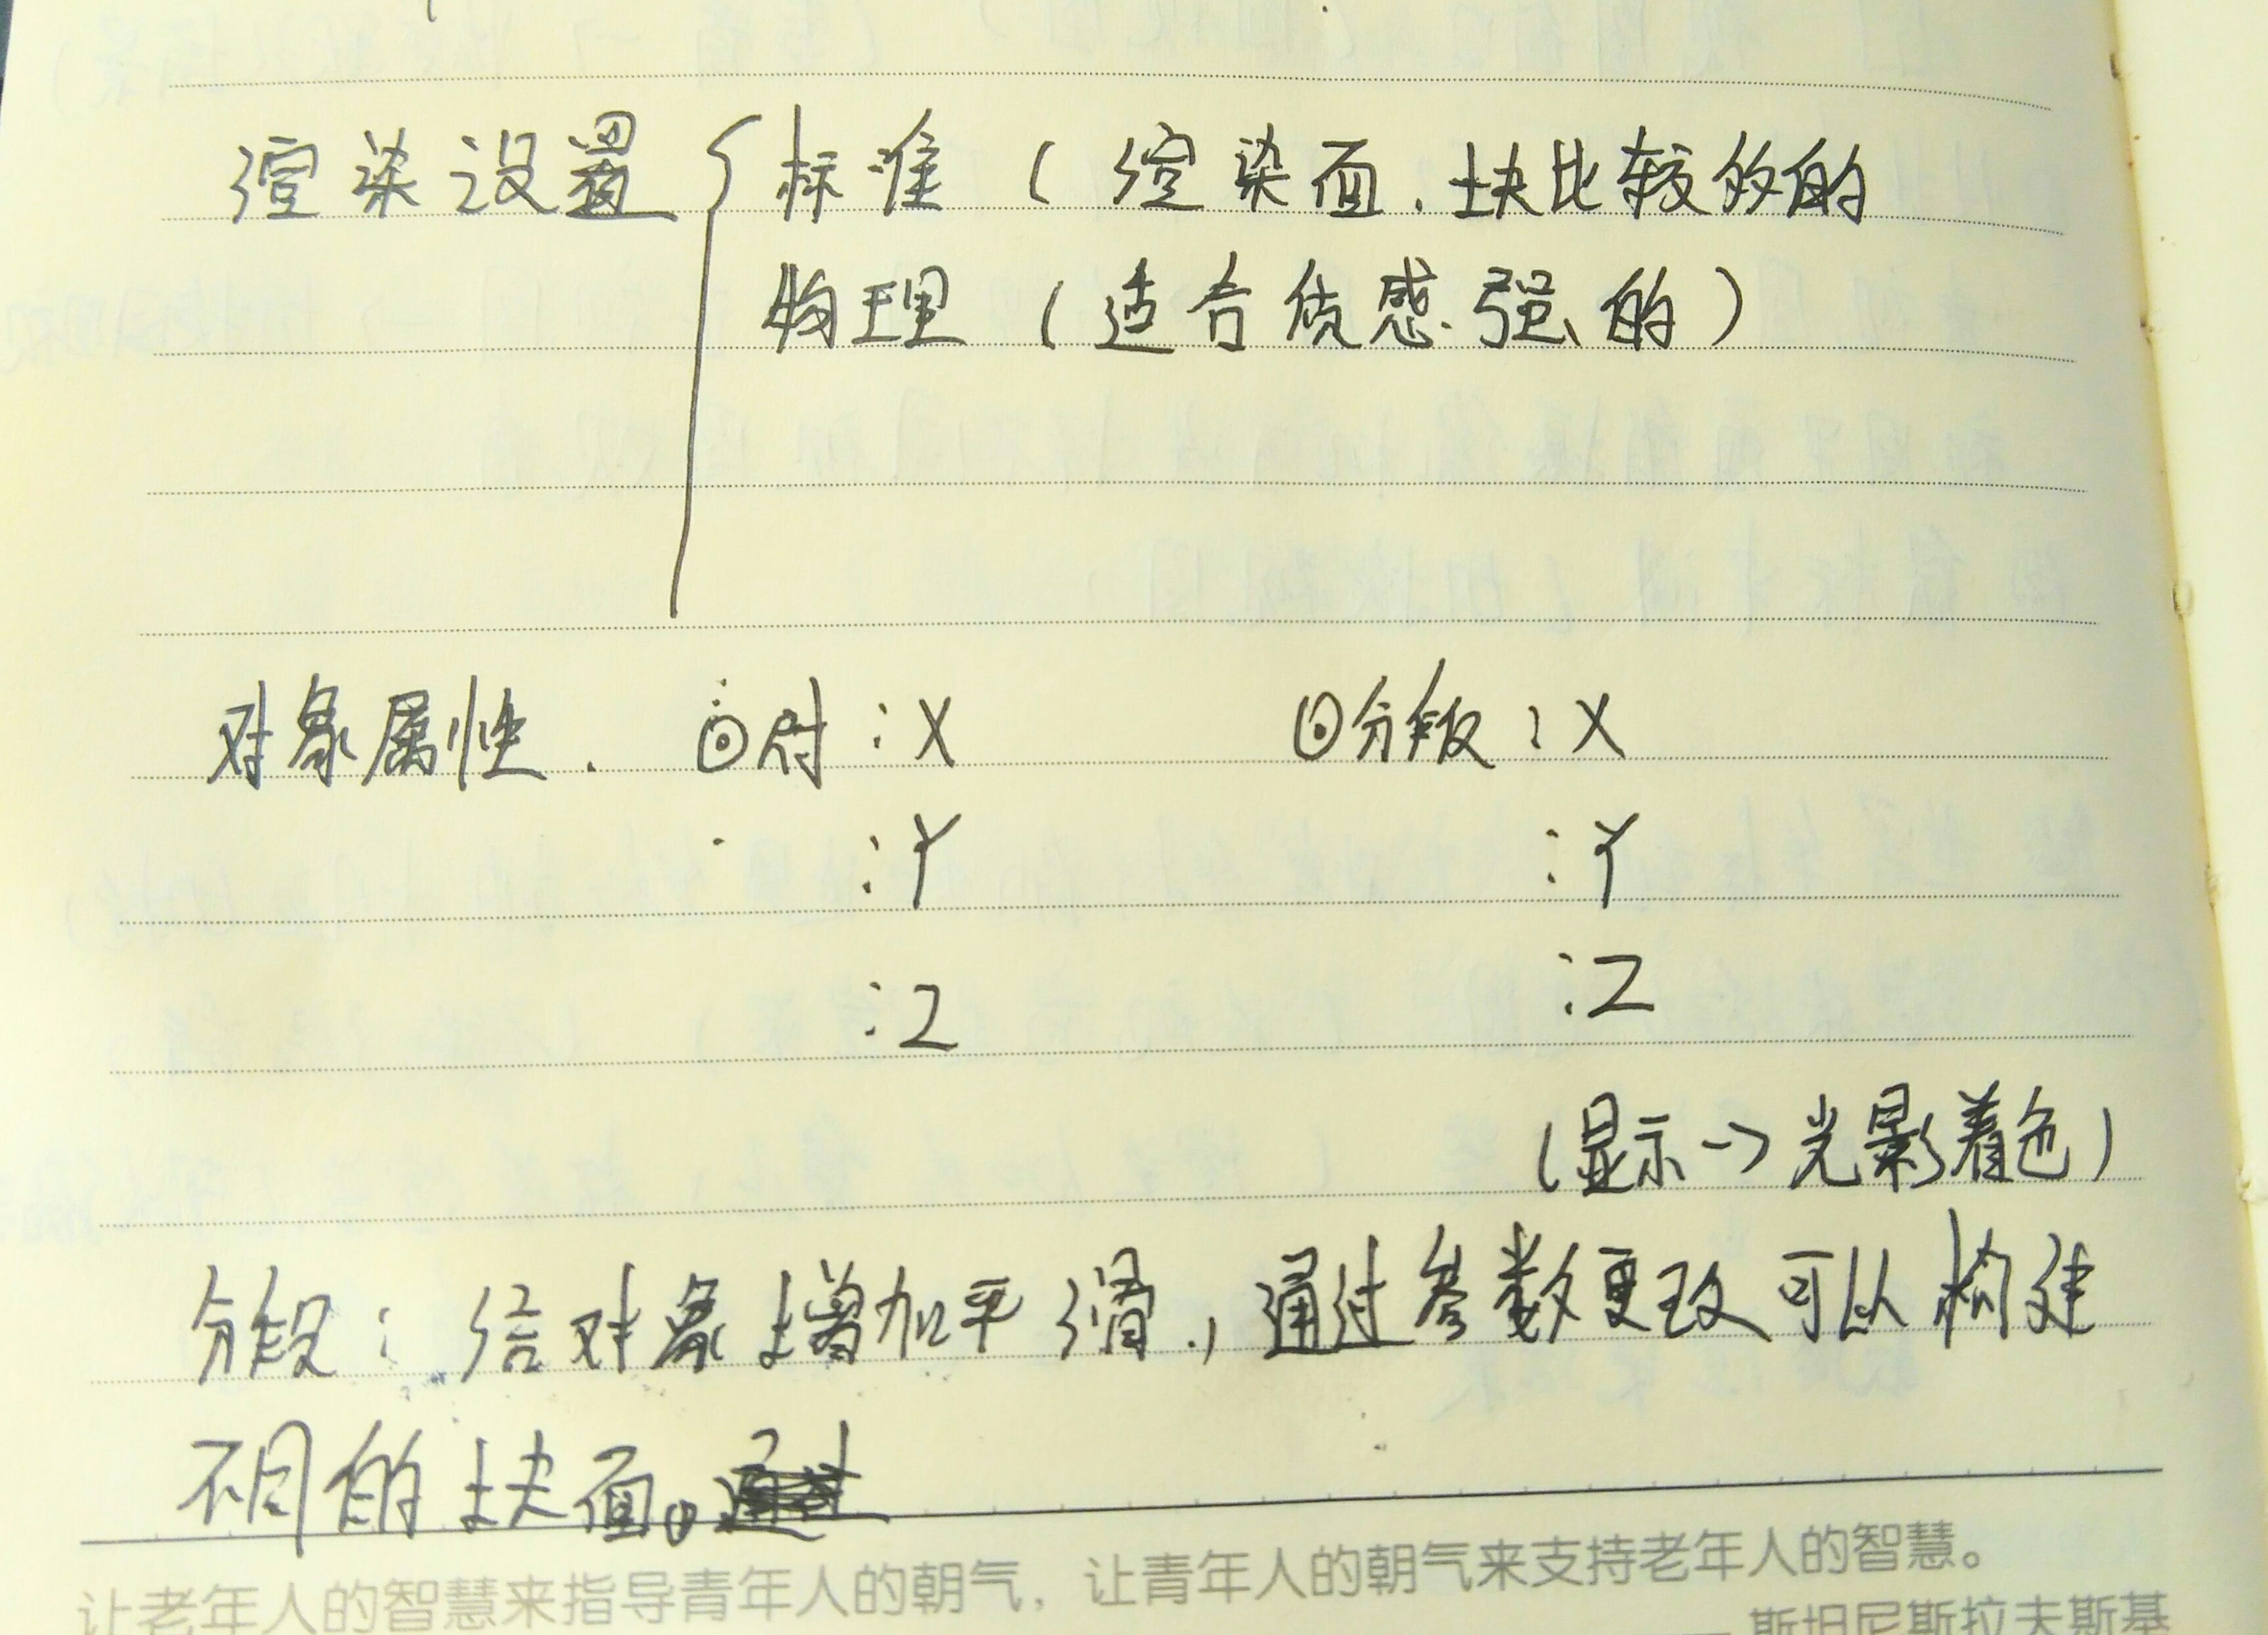 渲染设置 { 标准 ( 渲染面、块比较多的
物理 ( 适合质感强的 )
对象属性. ⊙ : X ⊙分段 : X
: Y : Y
: Z : Z
(显示→光影着色)
分段: 给对象增加平滑,通过参数更改可以构建
不同的块面。
让老年人的智慧来指导青年人的朝气，让青年人的朝气来支持老年人的智慧。
— 斯坦尼斯拉夫斯基